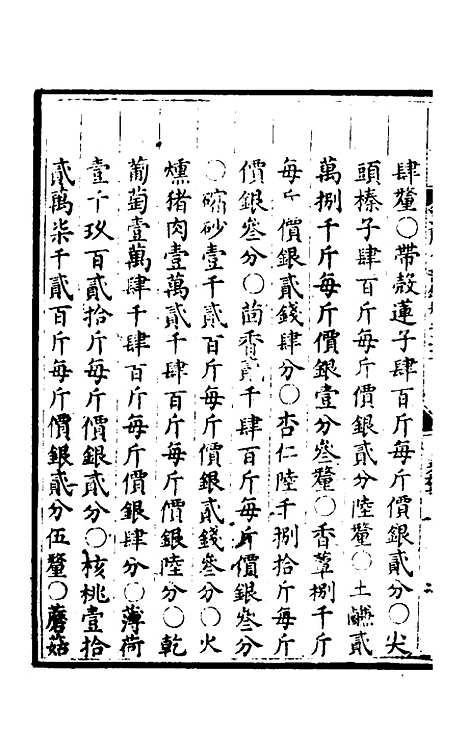 肆釐〇帶殼蓮子肆百斤每斤價銀貳分〇尖
頭榛子肆百斤每斤價銀貳分陸釐〇土鹻貳
萬捌千斤每斤價銀壹分叄釐〇香蕈捌千斤
每斤價銀貳錢肆分〇杏仁陸千捌拾斤每斤
價銀叄分〇茴香貳千肆百斤每斤價銀叄分
〇硇砂壹千貳百斤每斤價銀貳錢叄分〇火
燻猪肉壹萬貳千肆百斤每斤價銀陸分〇乾
葡萄壹萬肆千肆百斤每斤價銀肆分〇薄荷
壹千玖百貳拾斤每斤價銀貳分〇核桃壹拾
貳萬柒千貳百斤每斤價銀貳分伍釐〇蘑菇